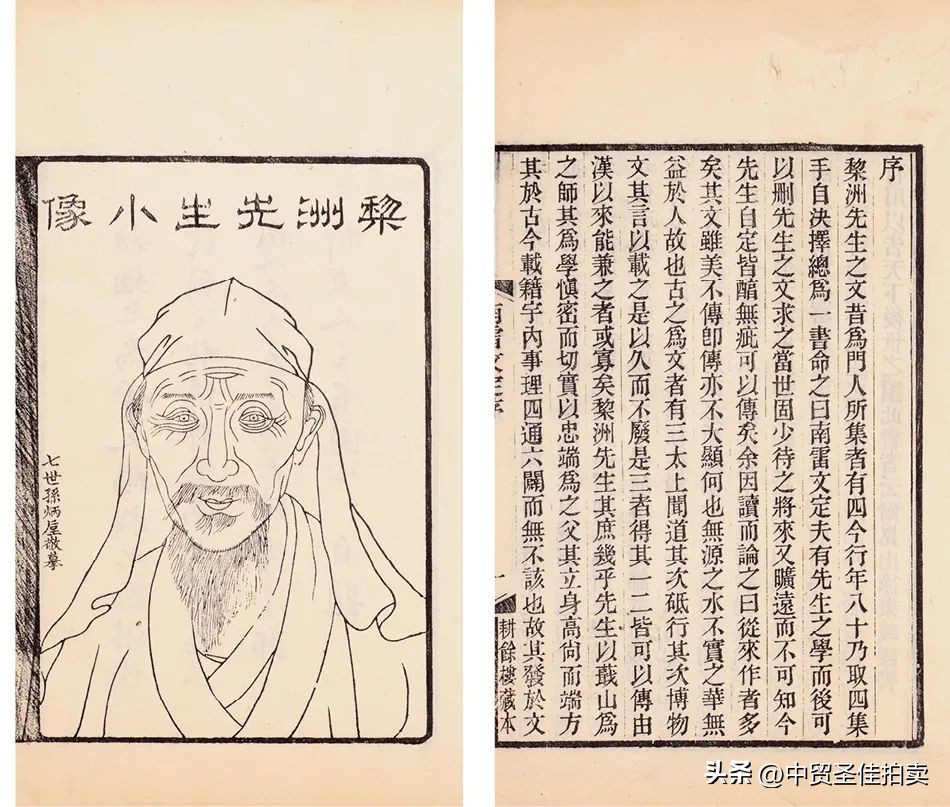 黎洲先生小像
七世孫炳垕敬摹
序
黎洲先生之文昔爲門人所集者有四今行年八十乃取四集
手自決擇總爲一書命之曰南雷文定夫有先生之學而後可
以刪先生之文求之當世固少待之將來又曠遠而不可知今
先生自定皆醕無疵可以傳矣余因讀而論之曰從來作者多
矣其文雖美不傳卽傳亦不大顯何也無源之水不實之華無
益於人故也古之爲文者有三太上聞道其次砥行其次博物
文其言以載之是以久而不廢是三者得其一二皆可以傳由
漢以來能兼之者或寡矣黎洲先生其庶幾乎先生以蕺山爲
之師其爲學愼密而切實以忠端爲之父其立身高尙而端方
其於古今載籍宇內事理四通六闢而無不該也故其發於文
南雷文定序
一
耕餘樓藏本
头条 @中贸圣佳拍卖